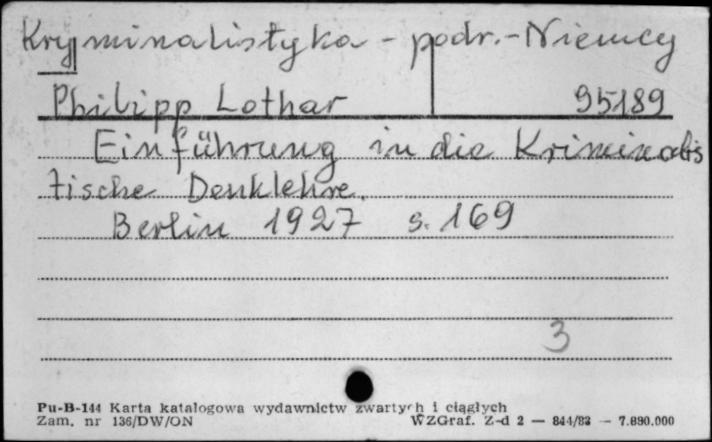 Kryminalistyka - podr. - Niemcy
Philipp Lothar 95189
Einführung in die Kriminalis
tische Denklehre.
Berlin 1927 s. 169
3
Pu-B-144 Karta katalogowa wydawnictw zwartych i ciągłych
Zam. nr 136/DW/ON WZGraf. Z-d 2 — 844/83 — 7.890.000